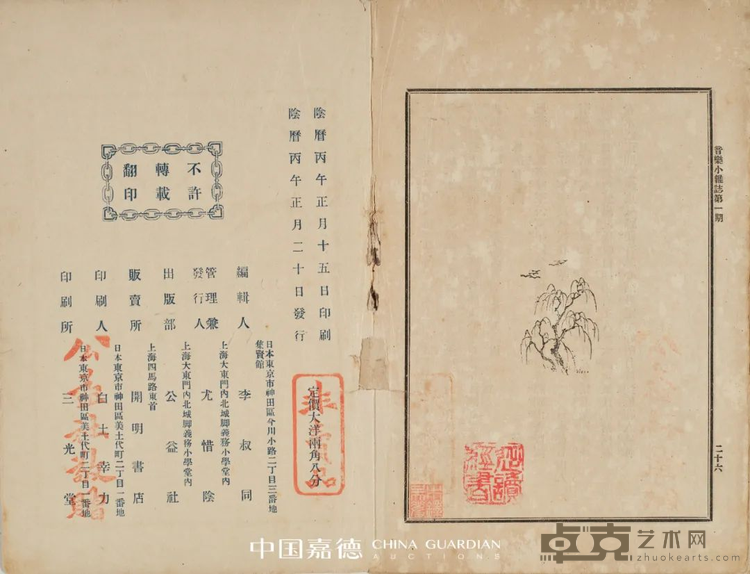 音樂小雜誌第一期
二十六
陰曆丙午正月十五日印刷
陰曆丙午正月二十日發行
不許
轉載
翻印
定價大洋兩角八分
非賣品
編輯人
日本東京市神田區今川小路二丁目三番地
集賢館
李叔同
管理兼
發行人
上海大東門內北城脚義務小學堂內
尤惜陰
出版部
上海大東門內北城脚義務小學堂內
公益社
販賣所
上海四馬路東首
開明書店
印刷人
日本東京市神田區美土代町二丁目一番地
白土幸力
印刷所
日本東京市神田區美土代町二丁目一番地
三光堂
中国嘉德
CHINA GUARDIAN
AUCTIONS
卓克艺术网
zhuokearts.com